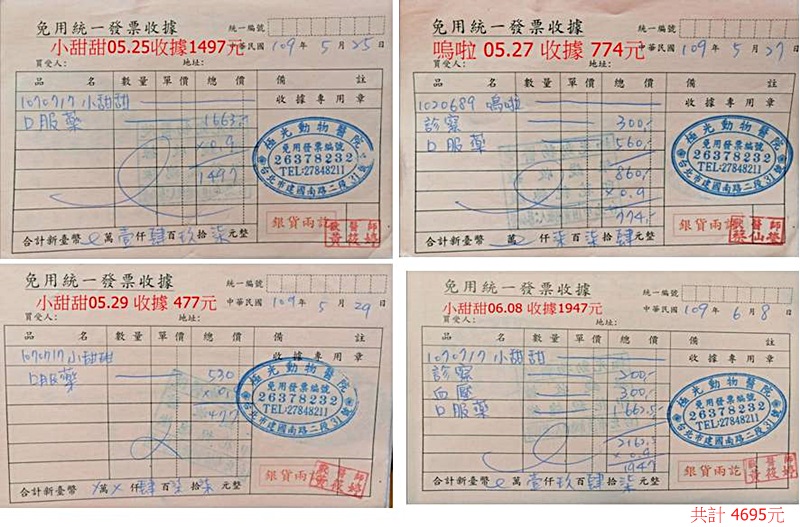 免用統一發票收據
統一編號
小甜甜05.25收據1497元
中華民國 109 年 5 月 25 日
買受人: 地址:
品 名 數量 單價 總價 備 註
1070717 小甜甜 收據專用章
口服藥 1663.-
x0.9
1497
極光動物醫院
免用發票編號
26378232
TEL:27848211
台北市建國南路二段31號
銀貨兩訖
合計新臺幣 萬 壹 仟 肆 百 玖 拾 柒 元整
免用統一發票收據
統一編號
嗚啦 05.27 收據 774元
中華民國 109 年 5 月 27 日
買受人: 地址:
品 名 數量 單價 總價 備 註
1020689 嗚啦 收據專用章
診察 300.-
口服藥 560.-
860.-
x0.9
774.-
極光動物醫院
免用發票編號
26378232
TEL:27848211
台北市建國南路二段31號
銀貨兩訖
合計新臺幣 萬 仟 柒 百 柒 拾 肆 元整
免用統一發票收據
統一編號
小甜甜05.29 收據 477元
中華民國 109 年 5 月 29 日
買受人: 地址:
品 名 數量 單價 總價 備 註
1070717 小甜甜 收據專用章
口服藥 530
x0.9
477
極光動物醫院
免用發票編號
26378232
TEL:27848211
台北市建國南路二段31號
銀貨兩訖
合計新臺幣 萬 仟 肆 百 柒 拾 柒 元整
免用統一發票收據
統一編號
小甜甜06.08 收據1947元
中華民國 109 年 6 月 8 日
買受人: 地址:
品 名 數量 單價 總價 備 註
1070717 小甜甜 收據專用章
診察 200.-
血壓 300.-
口服藥 1663.5-
2163.5
x0.9
1947
極光動物醫院
免用發票編號
26378232
TEL:27848211
台北市建國南路二段31號
銀貨兩訖
合計新臺幣 萬 壹 仟 玖 百 肆 拾 柒 元整
共計 4695元